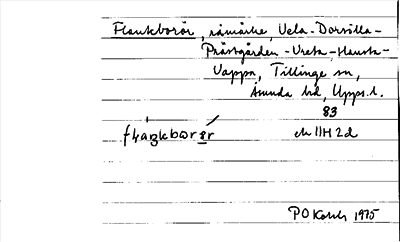 Flankborör, råmärke, Vela-Dorsilla-
Prästgården-Vreta-Hansta-
Vappa, Tillinge sn,
Åsunda hd, Upps. l.
83
ek 11H 2d
1975